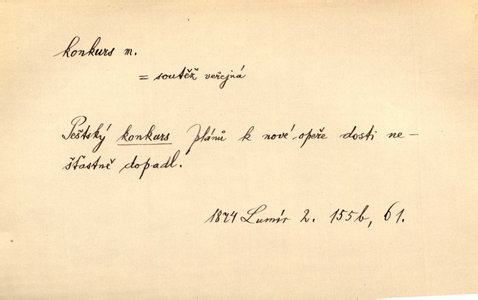 konkurs m.
= soutěž veřejná
Peštský konkurs plánů k nové opeře dosti ne-
šťastně dopadl.
1874 Lumír 2. 155b, 61.